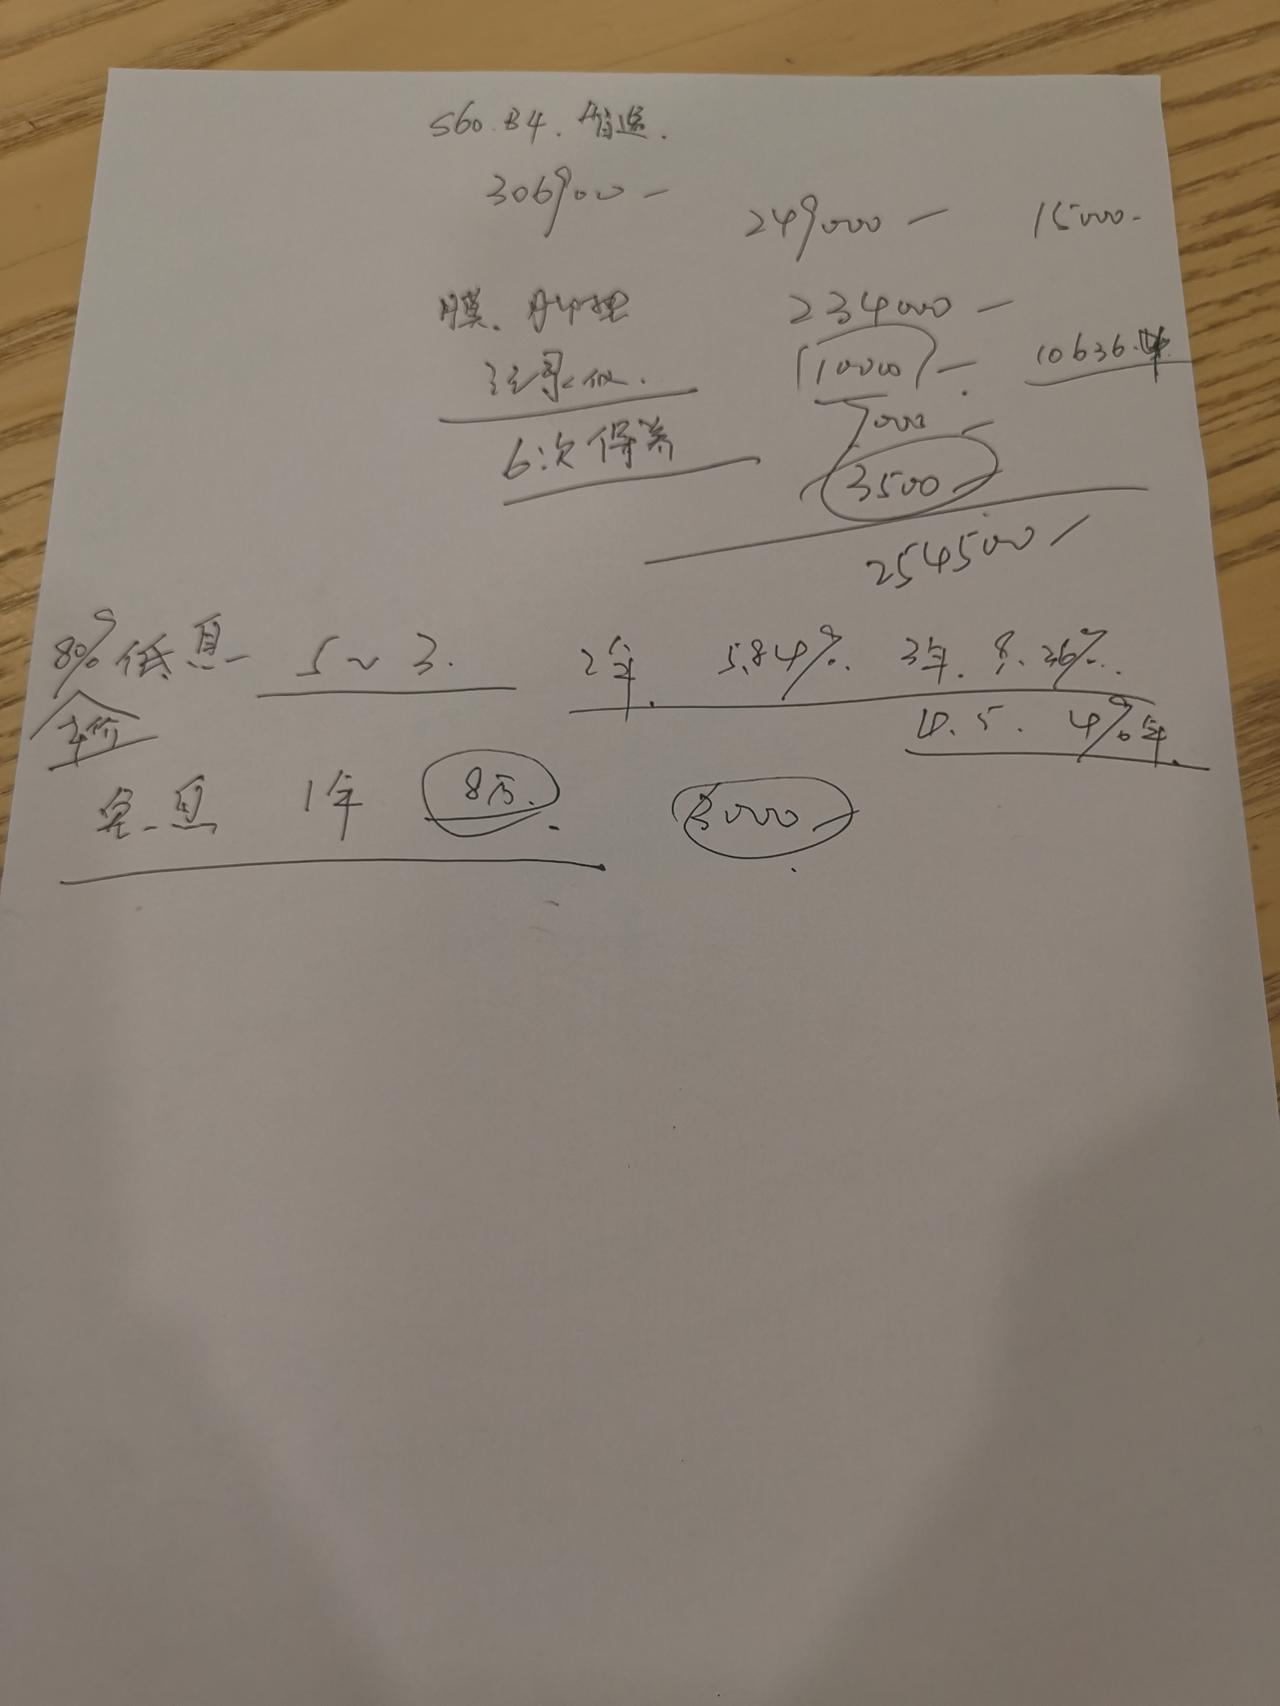 S60. B4. 智远.
306900 —
249000 — 15000.
膜、脚垫 234000 —
记录仪. (10000) — 10636.
7000 —
6次保养 3500
254500
80% 低息 5~3. 2年. 5.84%. 3年. 8.36%.
车价 4. 5. 4%年.
免息 1年 8万. 3000